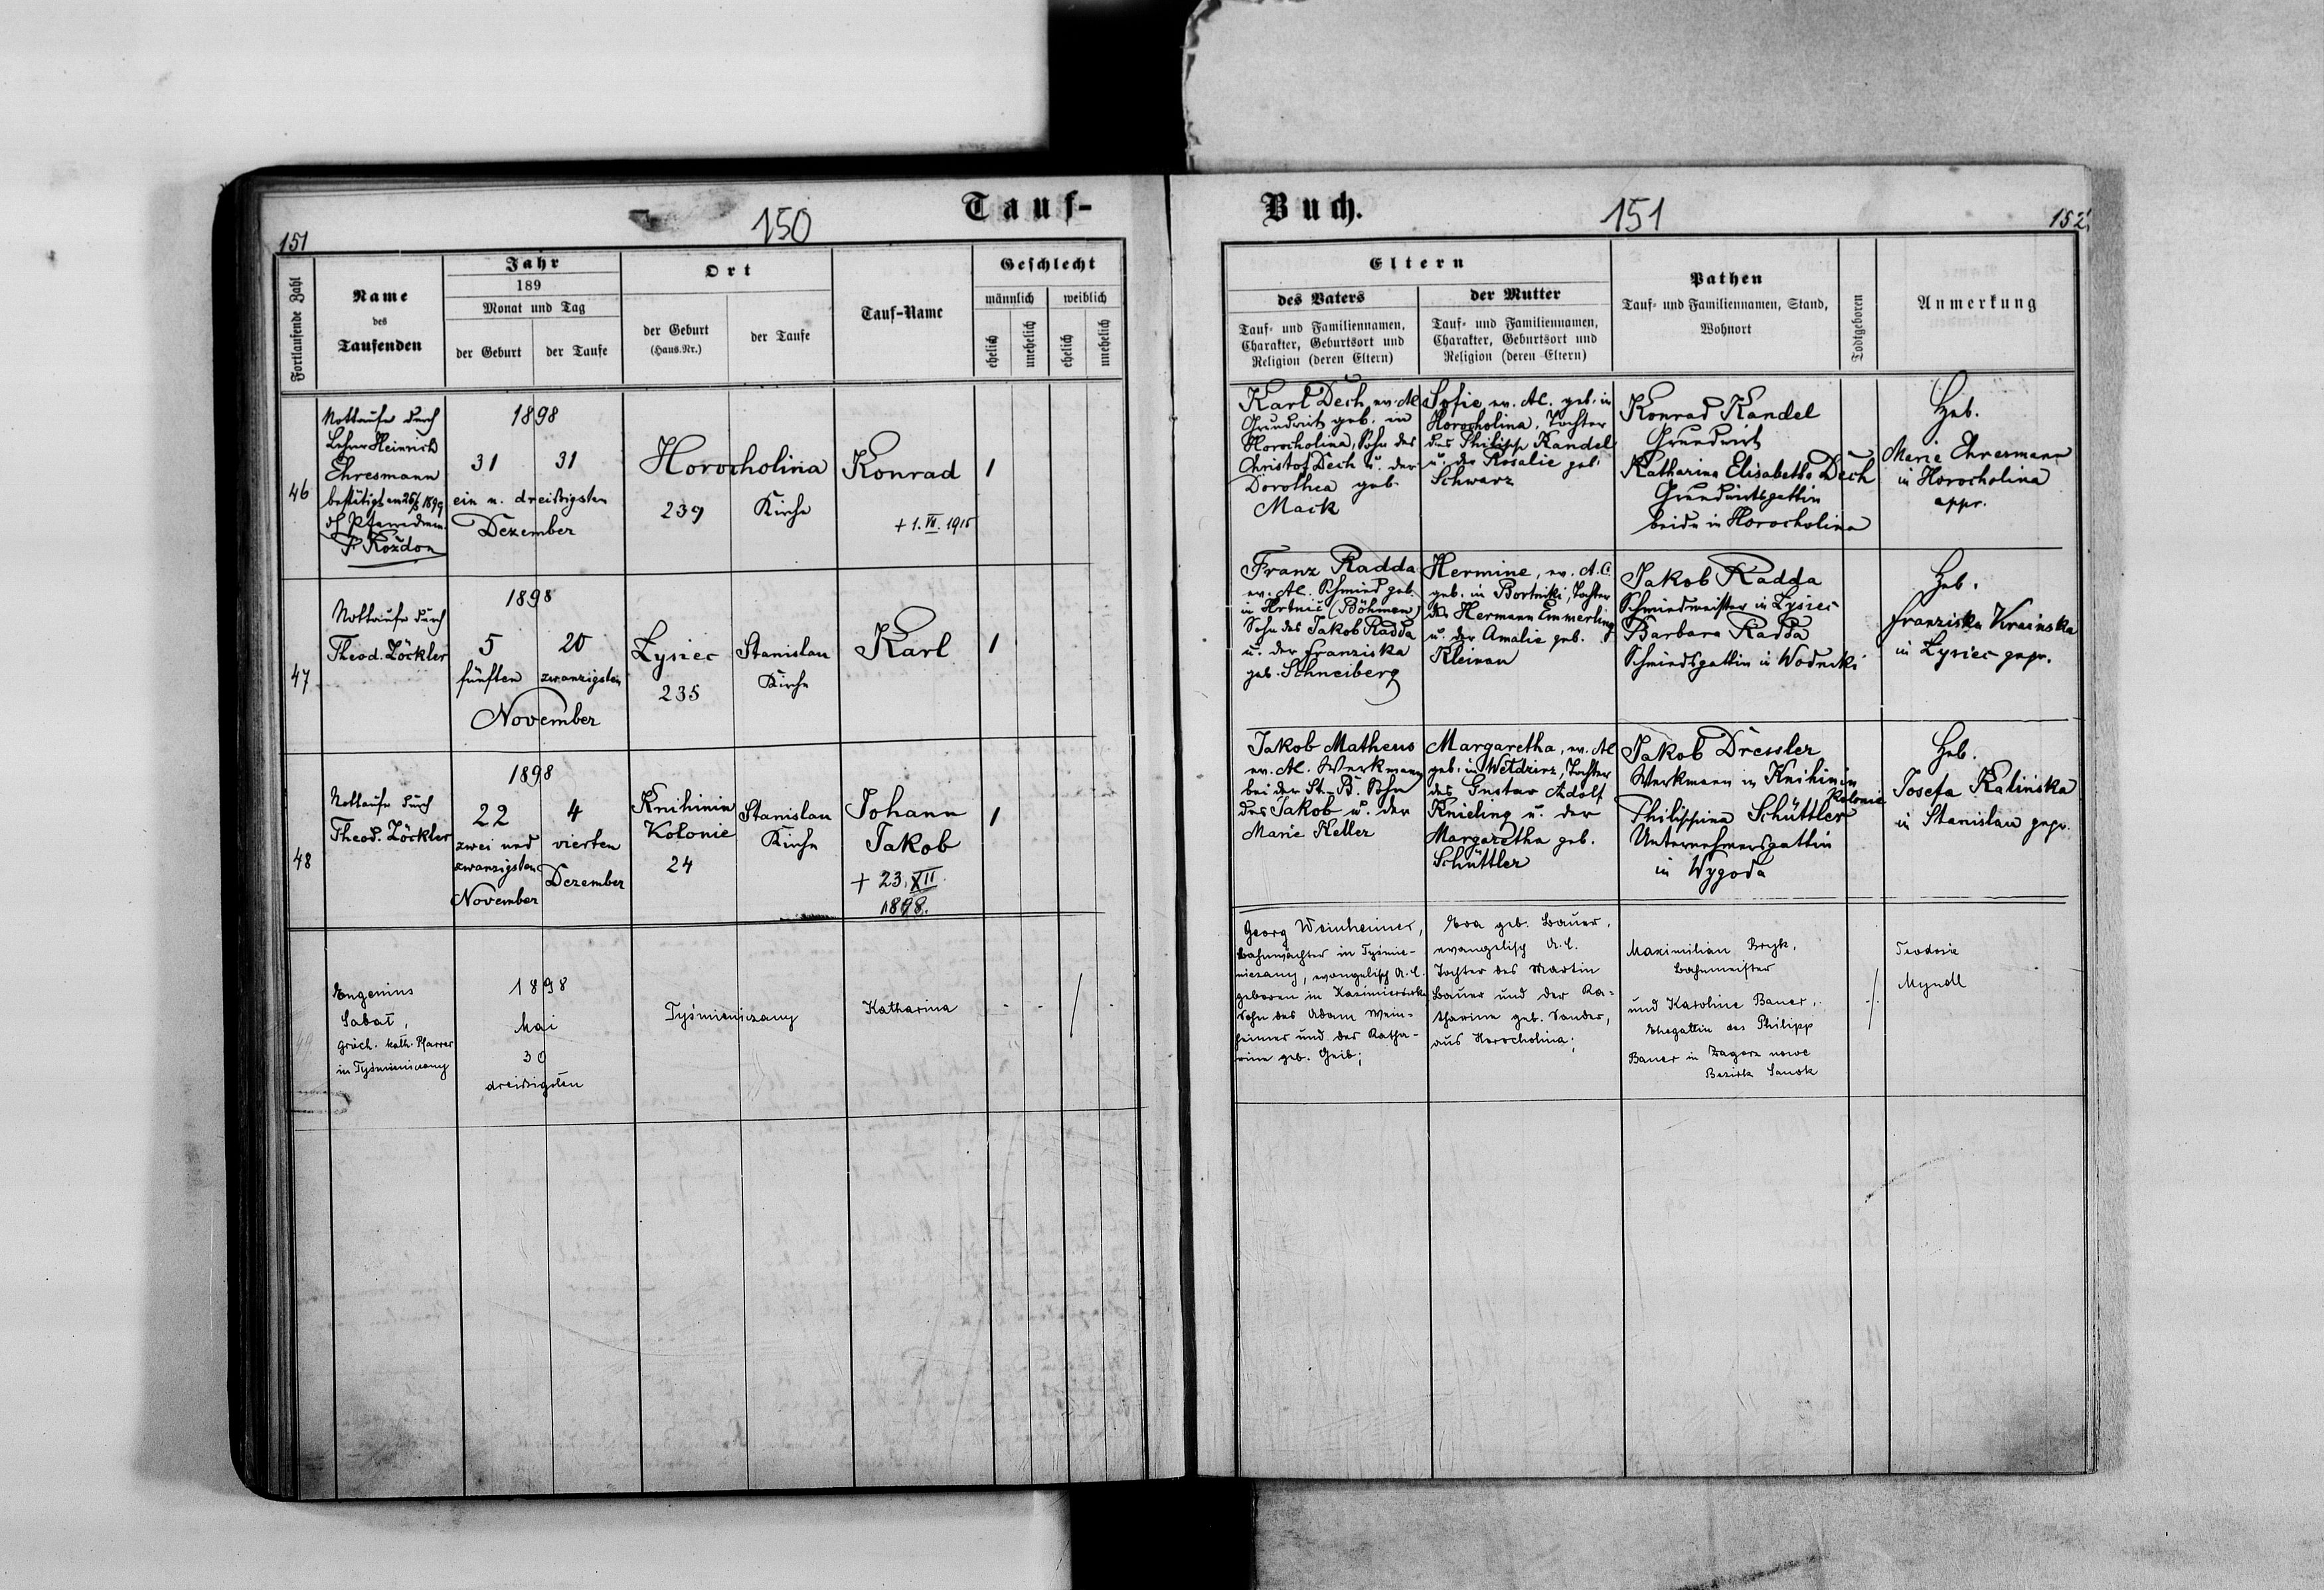 Tauf-
150
151
Fortlaufende Zahl
Name
des
Taufenden
Jahr
189
Monat und Tag
der Geburt
der Taufe
Ort
der Geburt
(Haus-Nr.)
der Taufe
Tauf-Name
Geschlecht
männlich
weiblich
ehelich
unehelich
ehelich
unehelich
46
Nottaufe durch
Lehrer Heinrich
Ehresmann
bestätigt am 26/3 1899
F. Kożdon
1898
31
31
ein u. dreißigsten
Dezember
Horocholina
239
Kirche
Konrad
+ 1. VII. 1915
1
47
Nottaufe durch
Theod. Zöckler
1898
5
20
fünften
zwanzigsten
November
Łysiec
235
Stanislau
Kirche
Karl
1
48
Nottaufe durch
Theod. Zöckler
1898
22
4
zwei und
vierten
zwanzigsten
Dezember
November
Knihinin
Kolonie
24
Stanislau
Kirche
Johann
Jakob
+ 23. XII.
1898.
1
49
Eugenius
Sabat,
griech. kath. Pfarrer
in Tyśmieniczany
1898
Mai
30
dreißigsten
Tyśmieniczany
Katharina
Buch.
151
152
Eltern
des Vaters
Tauf- und Familiennamen,
Charakter, Geburtsort und
Religion (deren Eltern)
der Mutter
Tauf- und Familiennamen,
Charakter, Geburtsort und
Religion (deren Eltern)
Pathen
Tauf- und Familiennamen, Stand,
Wohnort
Todtgeboren
Anmerkung
Karl Dech, ev. AC
Grundwirt geb. in
Horocholina, Sohn des
Christof Dech u. der
Dorothea geb.
Mack
Sofie ev. AC. geb. in
Horocholina, Tochter
des Philipp Kandel
u. der Rosalie geb.
Schwarz
Konrad Kandel
Grundwirt
Katharina Elisabetha Dech
Grundwirtsgattin
beide in Horocholina
Heb.
Marie Ehresmann
in Horocholina
appr.
Franz Radda
ev. AC. Schmied geb.
in Hrtnič (Böhmen)
Sohn des Jakob Radda
u. der Franziska
geb. Schneiberg
Hermine, ev. A.C.
geb. in Bortniki, Tochter
des Hermann Emmerling
u. der Amalie geb.
Kleinan
Jakob Radda
Schmiedmeister in Łysiec
Barbara Radda
Schmiedsgattin in Wodniki
Heb.
Franziska Krainska
in Łysiec gepr.
Jakob Matheus
ev. AC. Werkmann
bei der St.-B. Sohn
des Jakob u. der
Marie Keller
Margaretha, ev. AC
geb. in Wełdzirz, Tochter
des Gustav Adolf
Knieling u. der
Margaretha geb.
Schüttler
Jakob Dressler
Werkmann in Knihinin
Kolonie
Philippina Schüttler
Unternehmersgattin
in Wygoda
Heb.
Josefa Kalinska
in Stanislau gepr.
Georg Weinheimer,
Bahnwächter in Tyśmie-
niczany, evangelisch A.C.
geboren in Kazimierówka
Sohn des Adam Wein-
heimer und der Katha-
rina geb. Geib;
Eva geb. Bauer,
evangelisch A.C.
Tochter des Martin
Bauer und der Ka-
tharina geb. Sander,
aus Horocholina;
Maximilian Bryk,
Bahnmeister
und Karoline Bauer,
Ehegattin des Philipp
Bauer in Zagorz nowe
Bezirk Sanok
Teodosia
Myndl